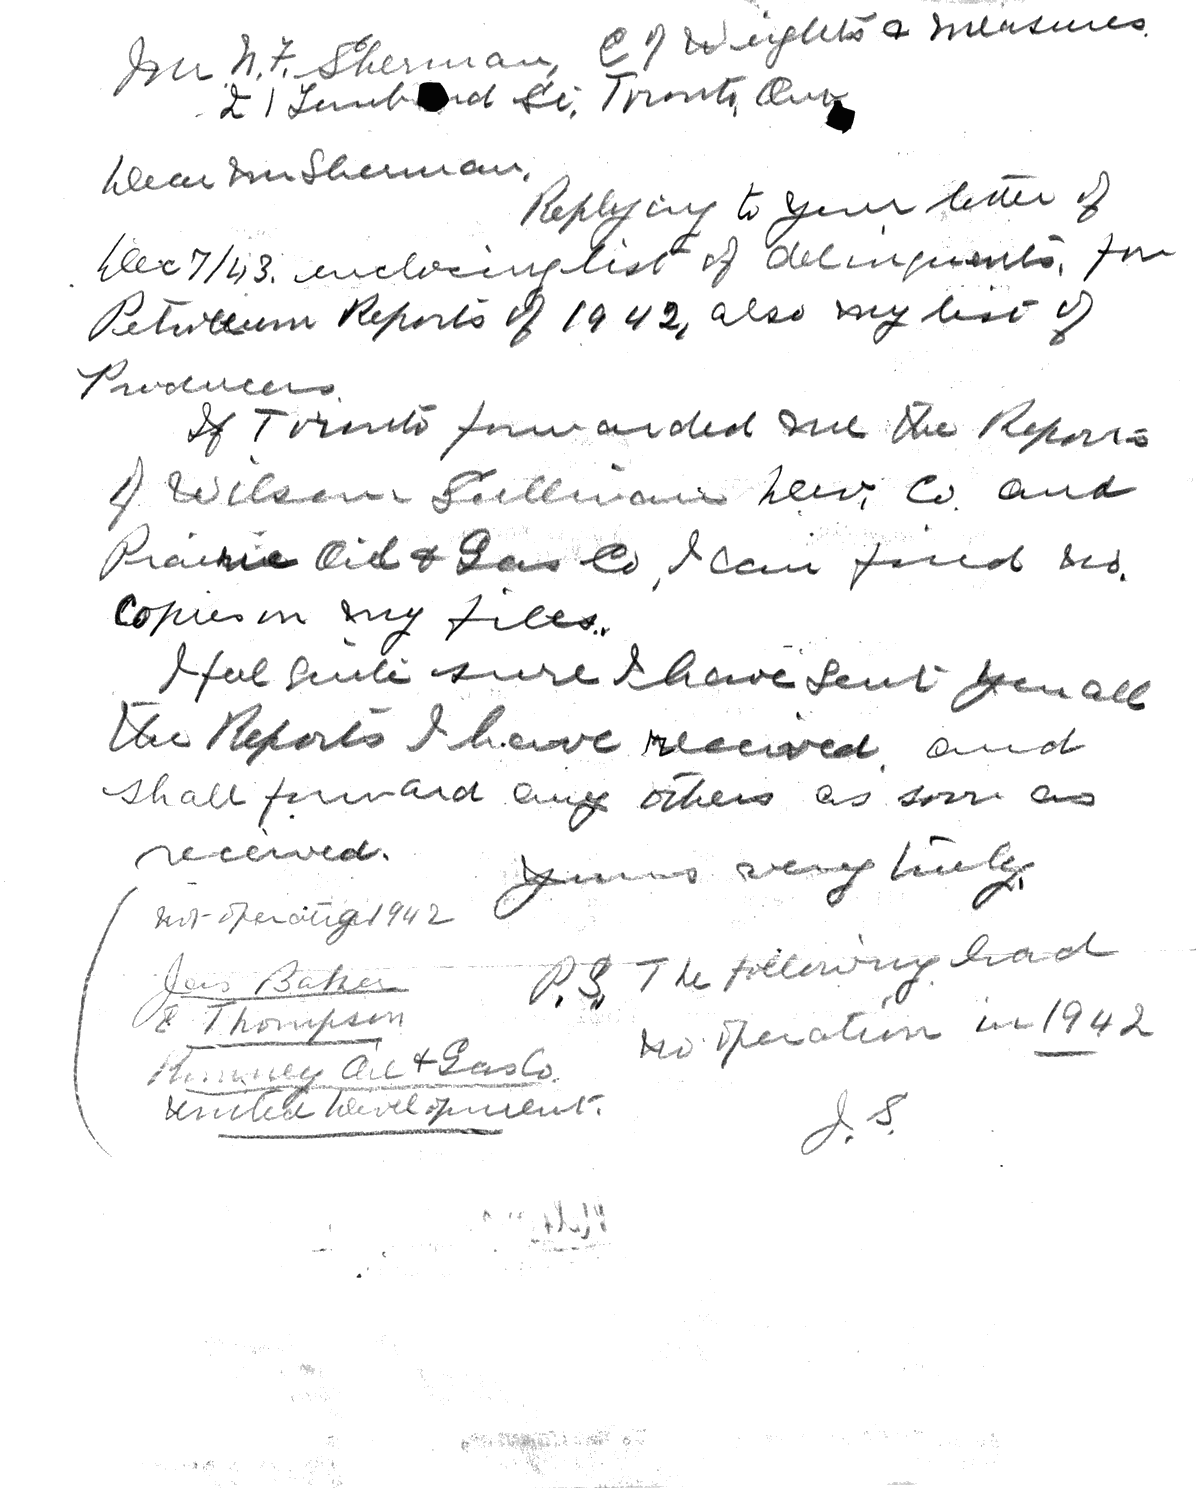 Mr. N. F. Sherman, C of Weights & Measures.
21 Lombard St., Toronto, Ont.
Dear Mr Sherman,
Replying to your letter of
Dec 7/43. enclosing list of delinquents, for
Petroleum Reports of 1942, also my list of
Producers.
If Toronto forwarded me the Reports
of Wilson Sullivan Dev. Co. and
Prairie Oil & Gas Co, I can find no.
copies in my files.
I feel quite sure I have sent you all
the Reports I have received, and
shall forward any others as soon as
received.
Yours very truly,
P.S. The following had
no operation in 1942
J. S.
not operating 1942
Jas Baker
E Thompson
Romney Oil & Gas Co.
United Development.